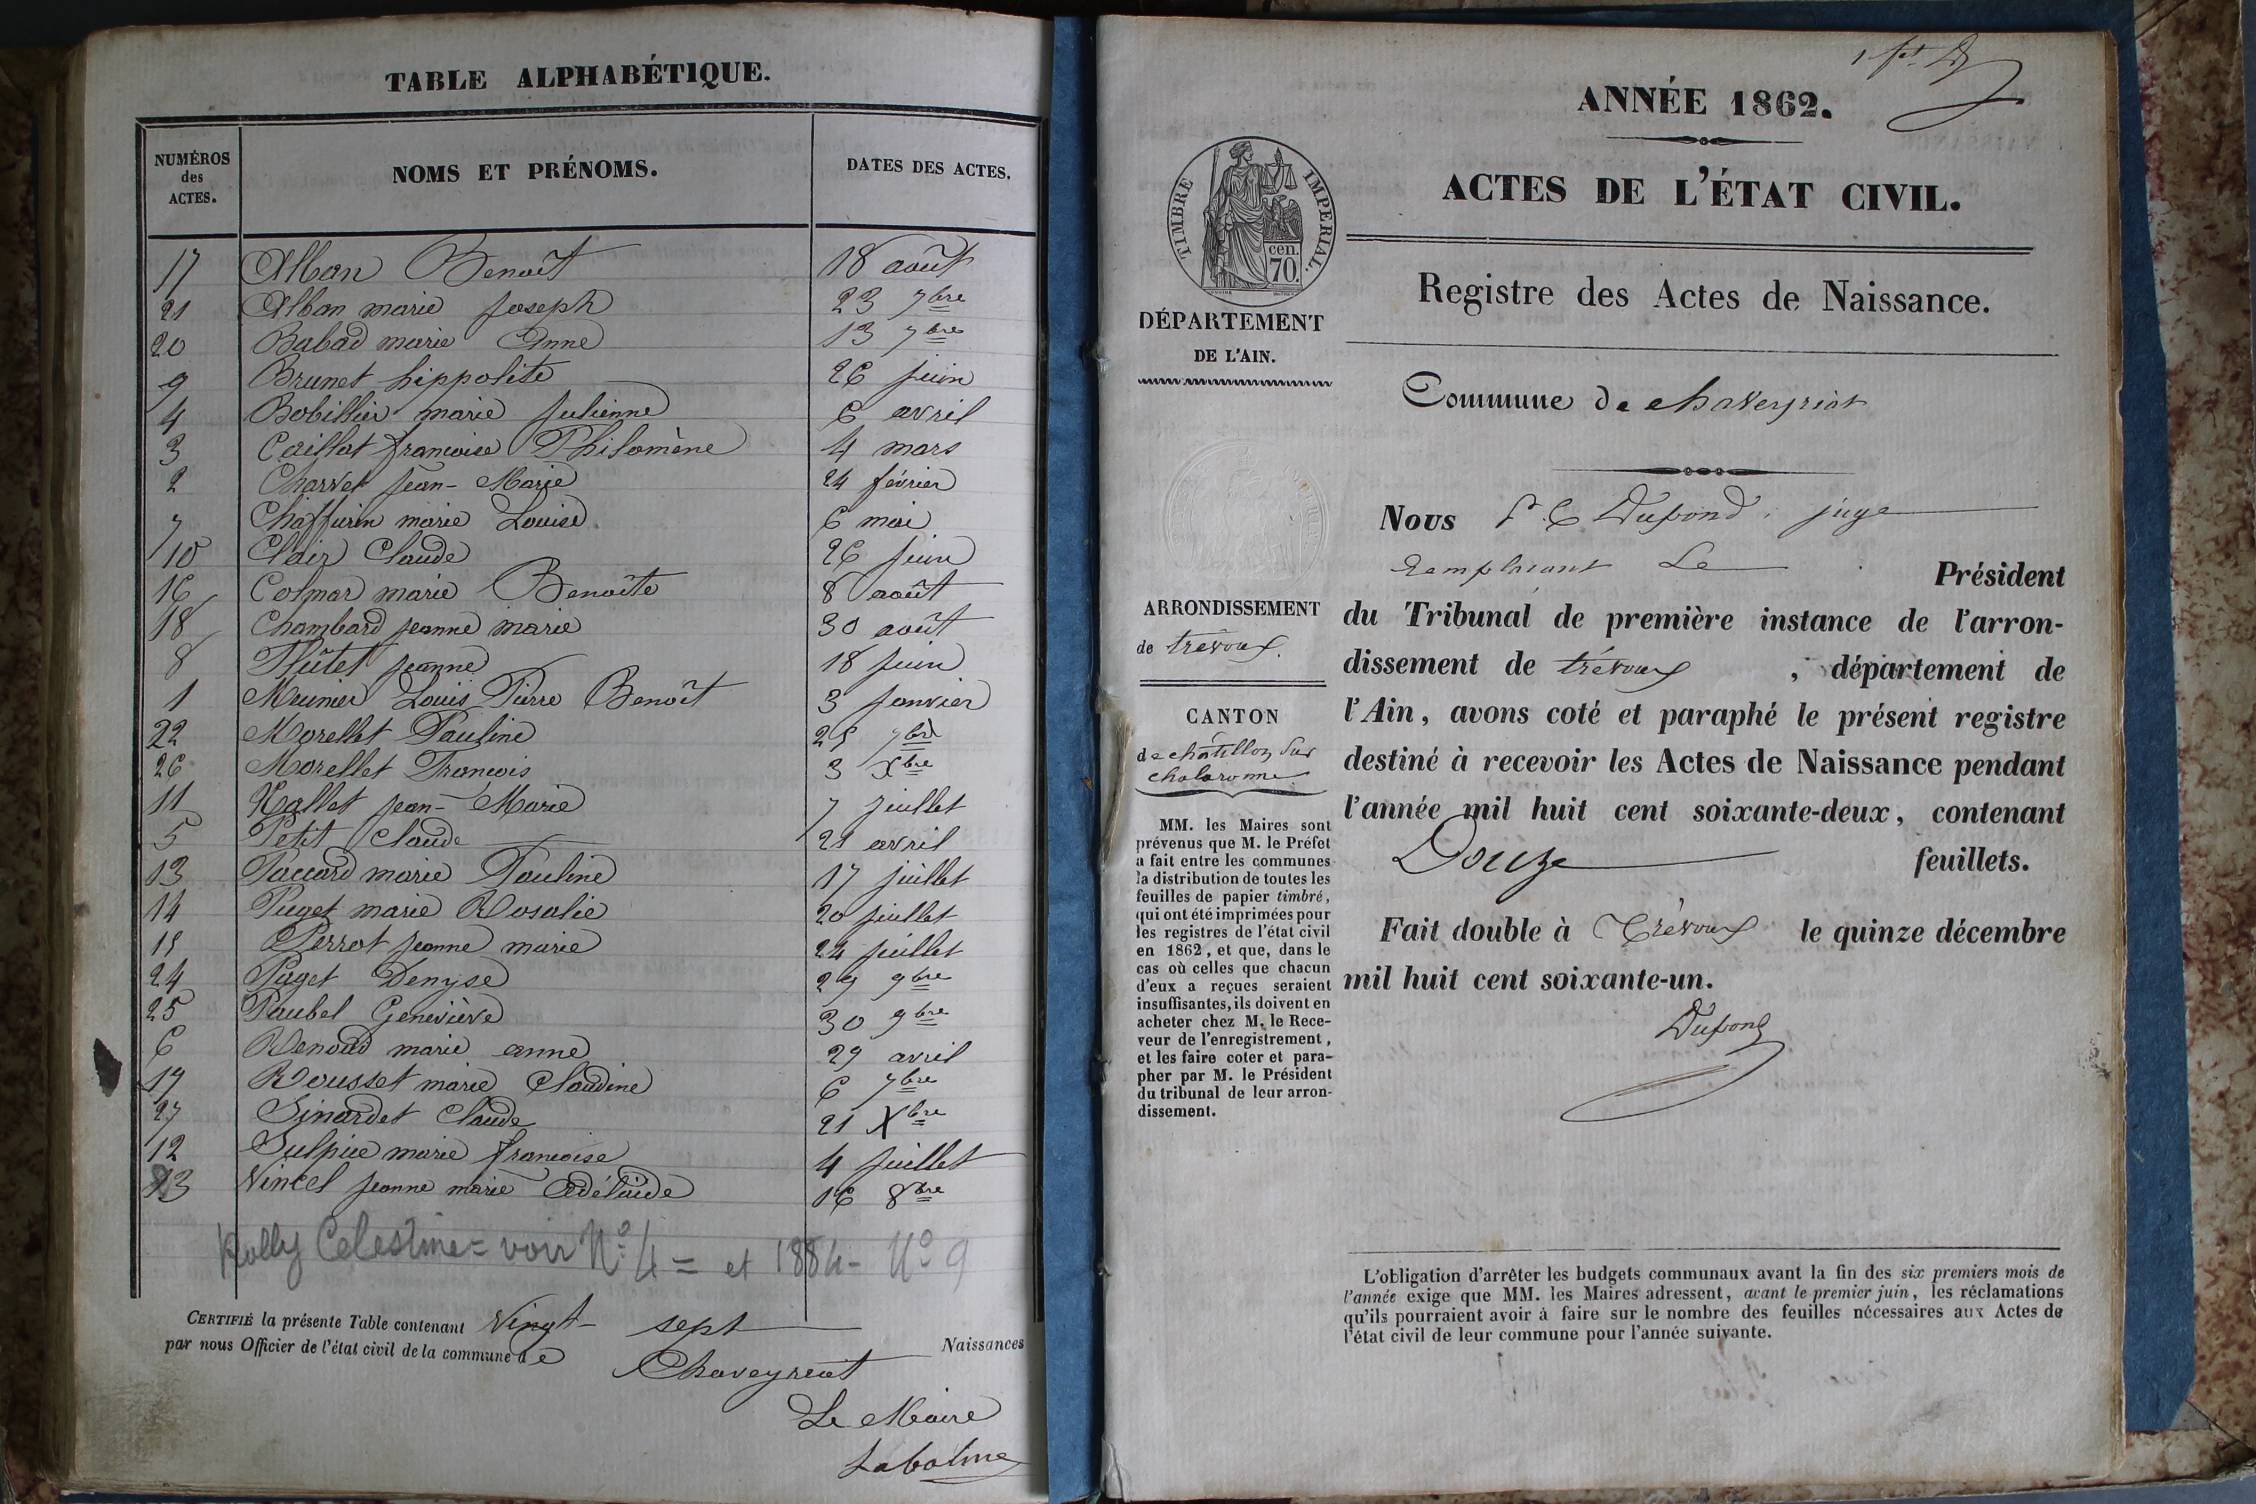 TABLE ALPHABÉTIQUE.
NUMÉROS des ACTES. NOMS ET PRÉNOMS. DATES DES ACTES.
17 Alban Benoît 18 août
21 Alban marie Joseph 23 7bre
20 Babad marie Anne 13 7bre
9 Brunet hippolite 26 juin
4 Bobillier marie Julienne 6 avril
3 Caillat francoise Philomène 4 mars
2 Charvet Jean-Marie 24 février
7 Chaffurin marie Louise 6 mai
10 Clair Claude 26 juin
16 Colmar marie Benoîte 8 août
18 Chambard jeanne marie 30 août
8 Flûtet jeanne 18 juin
1 Meunier Louis Pierre Benoît 3 janvier
22 Morellet Pauline 25 7bre
26 Morellet Francois 3 Xbre
11 Nallet jean-Marie 7 juillet
5 Petit Claude 21 avril
13 Paccard marie Pauline 17 juillet
14 Puget marie Rosalie 20 juillet
15 Perrot jeanne marie 24 juillet
24 Puget Denyse 29 9bre
25 Paubel Geneviève 30 9bre
6 Renoud marie anne 29 avril
19 Rousset marie Claudine 6 7bre
27 Sinardet Claude 21 Xbre
12 Sulpice marie francoise 4 juillet
23 Vincel jeanne marie Adélaïde 16 8bre
Rolly Celestine = voir N° 4 = et 1884 - N° 9
CERTIFIÉ la présente Table contenant Vingt-sept Naissances
par nous Officier de l'état civil de la commune de Chaveyriat
Le Maire
Labalme
ANNÉE 1862.
ACTES DE L'ÉTAT CIVIL.
TIMBRE IMPERIAL.
cen.
70.
Registre des Actes de Naissance.
DÉPARTEMENT
DE L'AIN.
Commune de chaveyriat
Nous Dupond, juge
remplacant Le Président
du Tribunal de première instance de l'arron-
dissement de trévoux, département de
l'Ain, avons coté et paraphé le présent registre
destiné à recevoir les Actes de Naissance pendant
l'année mil huit cent soixante-deux, contenant
Douze feuillets.
Fait double à Trévoux le quinze décembre
mil huit cent soixante-un.
Dupond
ARRONDISSEMENT
de trévoux.
CANTON
de chatillon sur
chalaronne
MM. les Maires sont
prévenus que M. le Préfet
a fait entre les communes
la distribution de toutes les
feuilles de papier timbré,
qui ont été imprimées pour
les registres de l'état civil
en 1862, et que, dans le
cas où celles que chacun
d'eux a reçues seraient
insuffisantes, ils doivent en
acheter chez M. le Rece-
veur de l'enregistrement,
et les faire coter et para-
pher par M. le Président
du tribunal de leur arron-
dissement.
L'obligation d'arrêter les budgets communaux avant la fin des six premiers mois de
l'année exige que MM. les Maires adressent, avant le premier juin, les réclamations
qu'ils pourraient avoir à faire sur le nombre des feuilles nécessaires aux Actes de
l'état civil de leur commune pour l'année suivante.